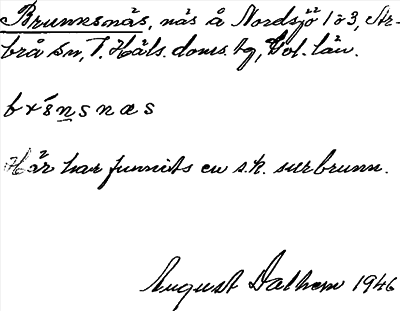 Brunnsnäs, näs å Nordsjö 1 o 3, Är-
brå sn, V. Häls. doms. tg, Gvl. län.
Här har funnits en s.k. surbrunn.
August Dalhem 1946